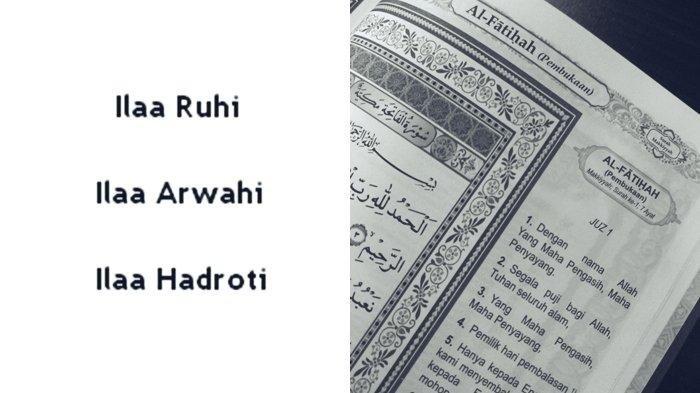 Ilaa Ruhi
Ilaa Arwahi
Ilaa Hadroti
Al-Fātihah (Pembukaan)
Surah
Makkiyyah
سورة الفاتحة مكية
بسم الله الر
الحمد لله رب
الرحيم
نعبد
AL-FĀTIHAH
(Pembukaan)
Makkiyyah: Surah ke-1: 7 Ayat
JUZ 1
1. Dengan nama Allah
Yang Maha Pengasih, Maha
Penyayang.
2. Segala puji bagi Allah,
Tuhan seluruh alam,
3. Yang Maha Pengasih,
Maha Penyayang,
4. Pemilik hari pembalasan
5. Hanya kepada En
kami menyembah
kepada
mohon